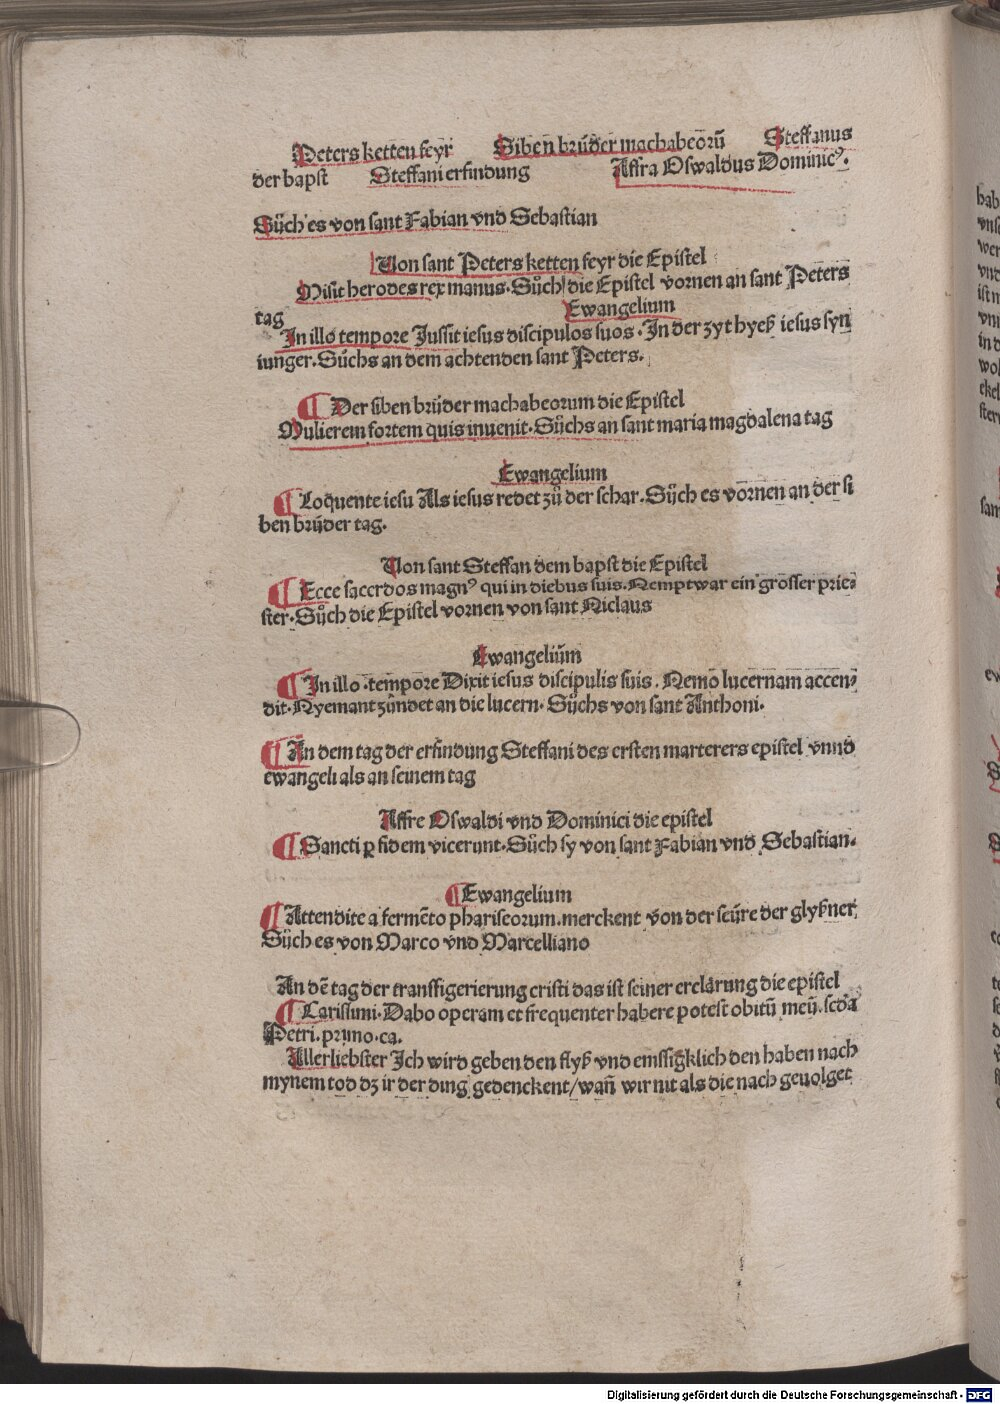 Peters ketten feyr Siben brůder machabeorū Steffanus
der bapst Steffani erfindung Affra Oswaldus Dominicꝰ.
Sůch es von sant Fabian vnd Sebastian
Von sant Peters ketten feyr die Epistel
Misit herodes rex manus. Sůch die Epistel vornen an sant Peters
tag Ewangelium
In illo tempore Jussit iesus discipulos suos. In der zyt hyeß iesus syn
iunger. Sůchs an dem achtenden sant Peters.
¶ Der siben brůder machabeorum die Epistel
Mulierem fortem quis inuenit. Sůchs an sant maria magdalena tag
Ewangelium
¶ Loquente iesu Als iesus redet zů der schar. Sůch es vornen an der si
ben brůder tag.
Von sant Steffan dem bapst die Epistel
¶ Ecce sacerdos magnꝰ qui in diebus suis. Nempt war ein grosser prie-
ster. Sůch die Epistel vornen von sant Niclaus
Ewangeliūm
¶ In illo tempore Dixit iesus discipulis suis. Nemo lucernam accen-
dit. Nyemant zündet an die lucern. Sůchs von sant Anthoni.
¶ An dem tag der erfindung Steffani des ersten marterers epistel vnnd
ewangeli als an seinem tag
Affre Oswaldi vnd Dominici die epistel
¶ Sancti ꝑ fidem vicerunt. Sůch sy von sant Fabian vnd Sebastian.
¶ Ewangelium
¶ Attendite a fermēto phariseorum. merckent von der seüre der glyßner
Sůch es von Marco vnd Marcelliano
An dē tag der transfigerierung cristi das ist seiner erclärung die epistel
¶ Carissimi. Dabo operam et frequenter habere potest obitū meū. scda
Petri. primo. ca.
Allerliebster Ich wird geben den flyß vnd emssigklich den haben nach
mynem tod dz ir der ding gedenckent/wañ wir nit als die nach geuolget
Digitalisierung gefördert durch die Deutsche Forschungsgemeinschaft - DFG